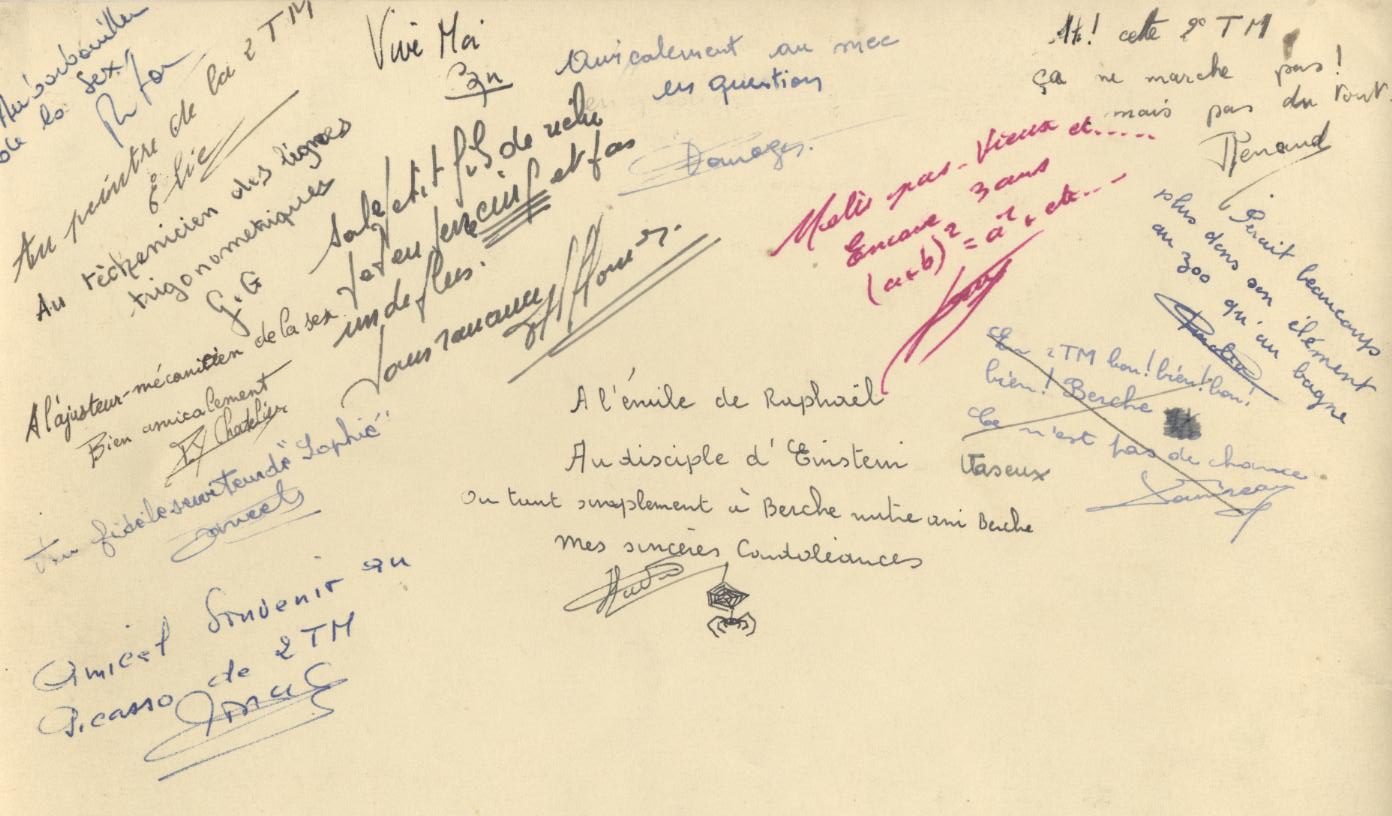 Au barbouilleur
de la sex!
Au peintre de la 2 TM
Elie
Au téchenicien des lignes
trigonometriques
G.G
A l'ajusteur-mécanicien de la sex
Bien amicalement
Chatelier
fidèle serviteur de "Sophie"
Amical Souvenir au
Picasso de 2 TM
Vive Moi
Sale petit fils de
et pas
un de plus.
Sans rancune
Amicalement au mec
en question
Ah! cette 2e TM
ça ne marche pas!
mais pas du tout.
Renaud
Molis pas. Vieux et.....
Encore 3 ans
(a+b)² = a² + etc...
Serait beaucoup
plus dans son élément
au 300 qu'au bagne
La 2TM bon! bien! bon!
bien! Berche
Ce n'est pas de chance
Vaseux
A l'émule de Raphaël
Au disciple d'Einstein
Ou tout simplement à Berche notre ami Berche
Mes sincères Condoléances